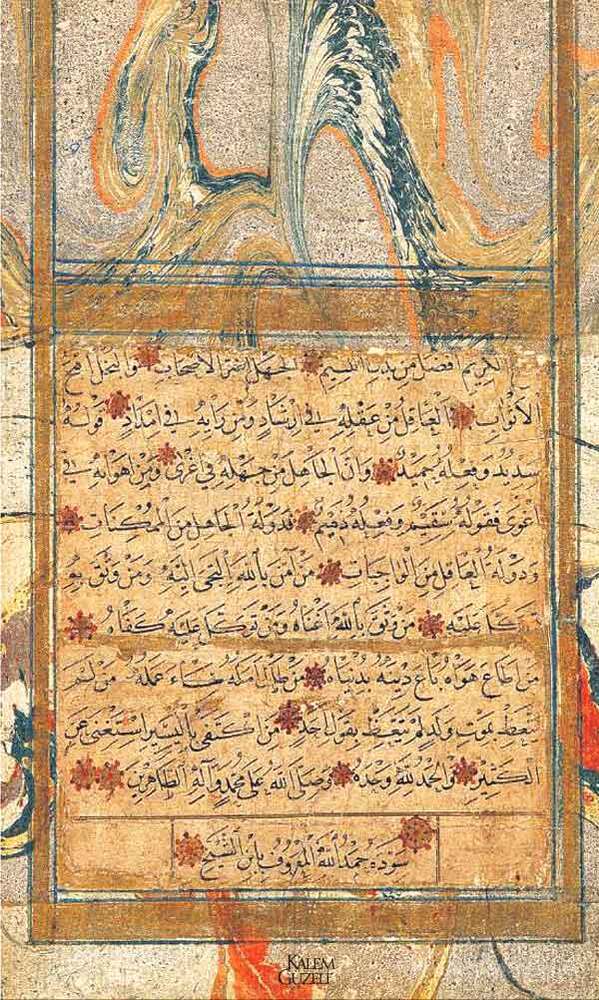 الكريم افضل من بدن السقيم الجهل اضر الاصحاب والبخل اقبح
الابواب العاقل من عقله في ارشاد ومن رايه في امداد فقوله
سديد وفعله حميد وان الجاهل من جهله في اغرى ومن اهوائه في
اغوى فقوله سقيم وفعله ذميم فدولة الجاهل من الممكنات
ودولة العاقل من الواجبات من آمن بالله التجى اليه ومن وثق به
توكل عليه من وثق بالله اغناه ومن توكل عليه كفاه
من اطاع هواه باع دينه بدنياه من طال امله ساء عمله من لم
يتعظ بموت ولد لم يتعظ بقول احد من اكتفى باليسير استغنى عن
الكثير والحمد لله وحده وصلى الله على محمد وآله الطاهرين
سوده حمد الله المعروف بابن الشيخ
KALEM
GUZELI